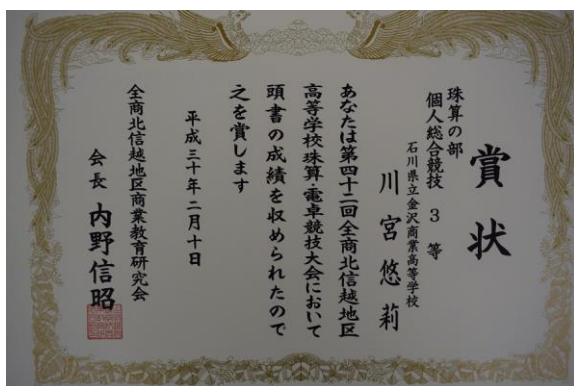 賞状
珠算の部
個人総合競技 3 等
石川県立金沢商業高等学校
川宮悠莉
あなたは第四十二回全商北信越地区
高等学校珠算・電卓競技大会において
頭書の成績を収められたので
之を賞します
平成三十年二月十日
全商北信越地区商業教育研究会
会長 内野信昭